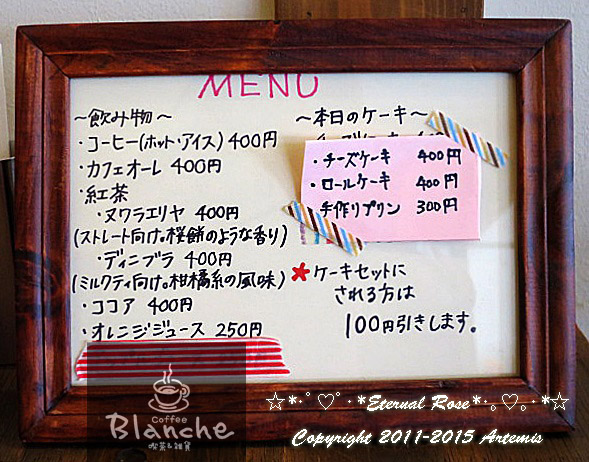 MENU
〜飲み物〜
・コーヒー(ホット・アイス) 400円
・カフェオーレ 400円
・紅茶
・ヌワラエリヤ 400円
(ストレート向け。桜餅のような香り)
・ディンブラ 400円
(ミルクティ向け。柑橘系の風味)
・ココア 400円
・オレンジジュース 250円
〜本日のケーキ〜
・チーズケーキ 400円
・ロールケーキ 400円
手作りプリン 300円
*ケーキセットに
される方は
100円引きします。
Coffee
Blanche
喫茶&雑貨
☆*・゜♡゜・*Eternal Rose*・。♡。・*☆
Copyright 2011-2015 Artemis